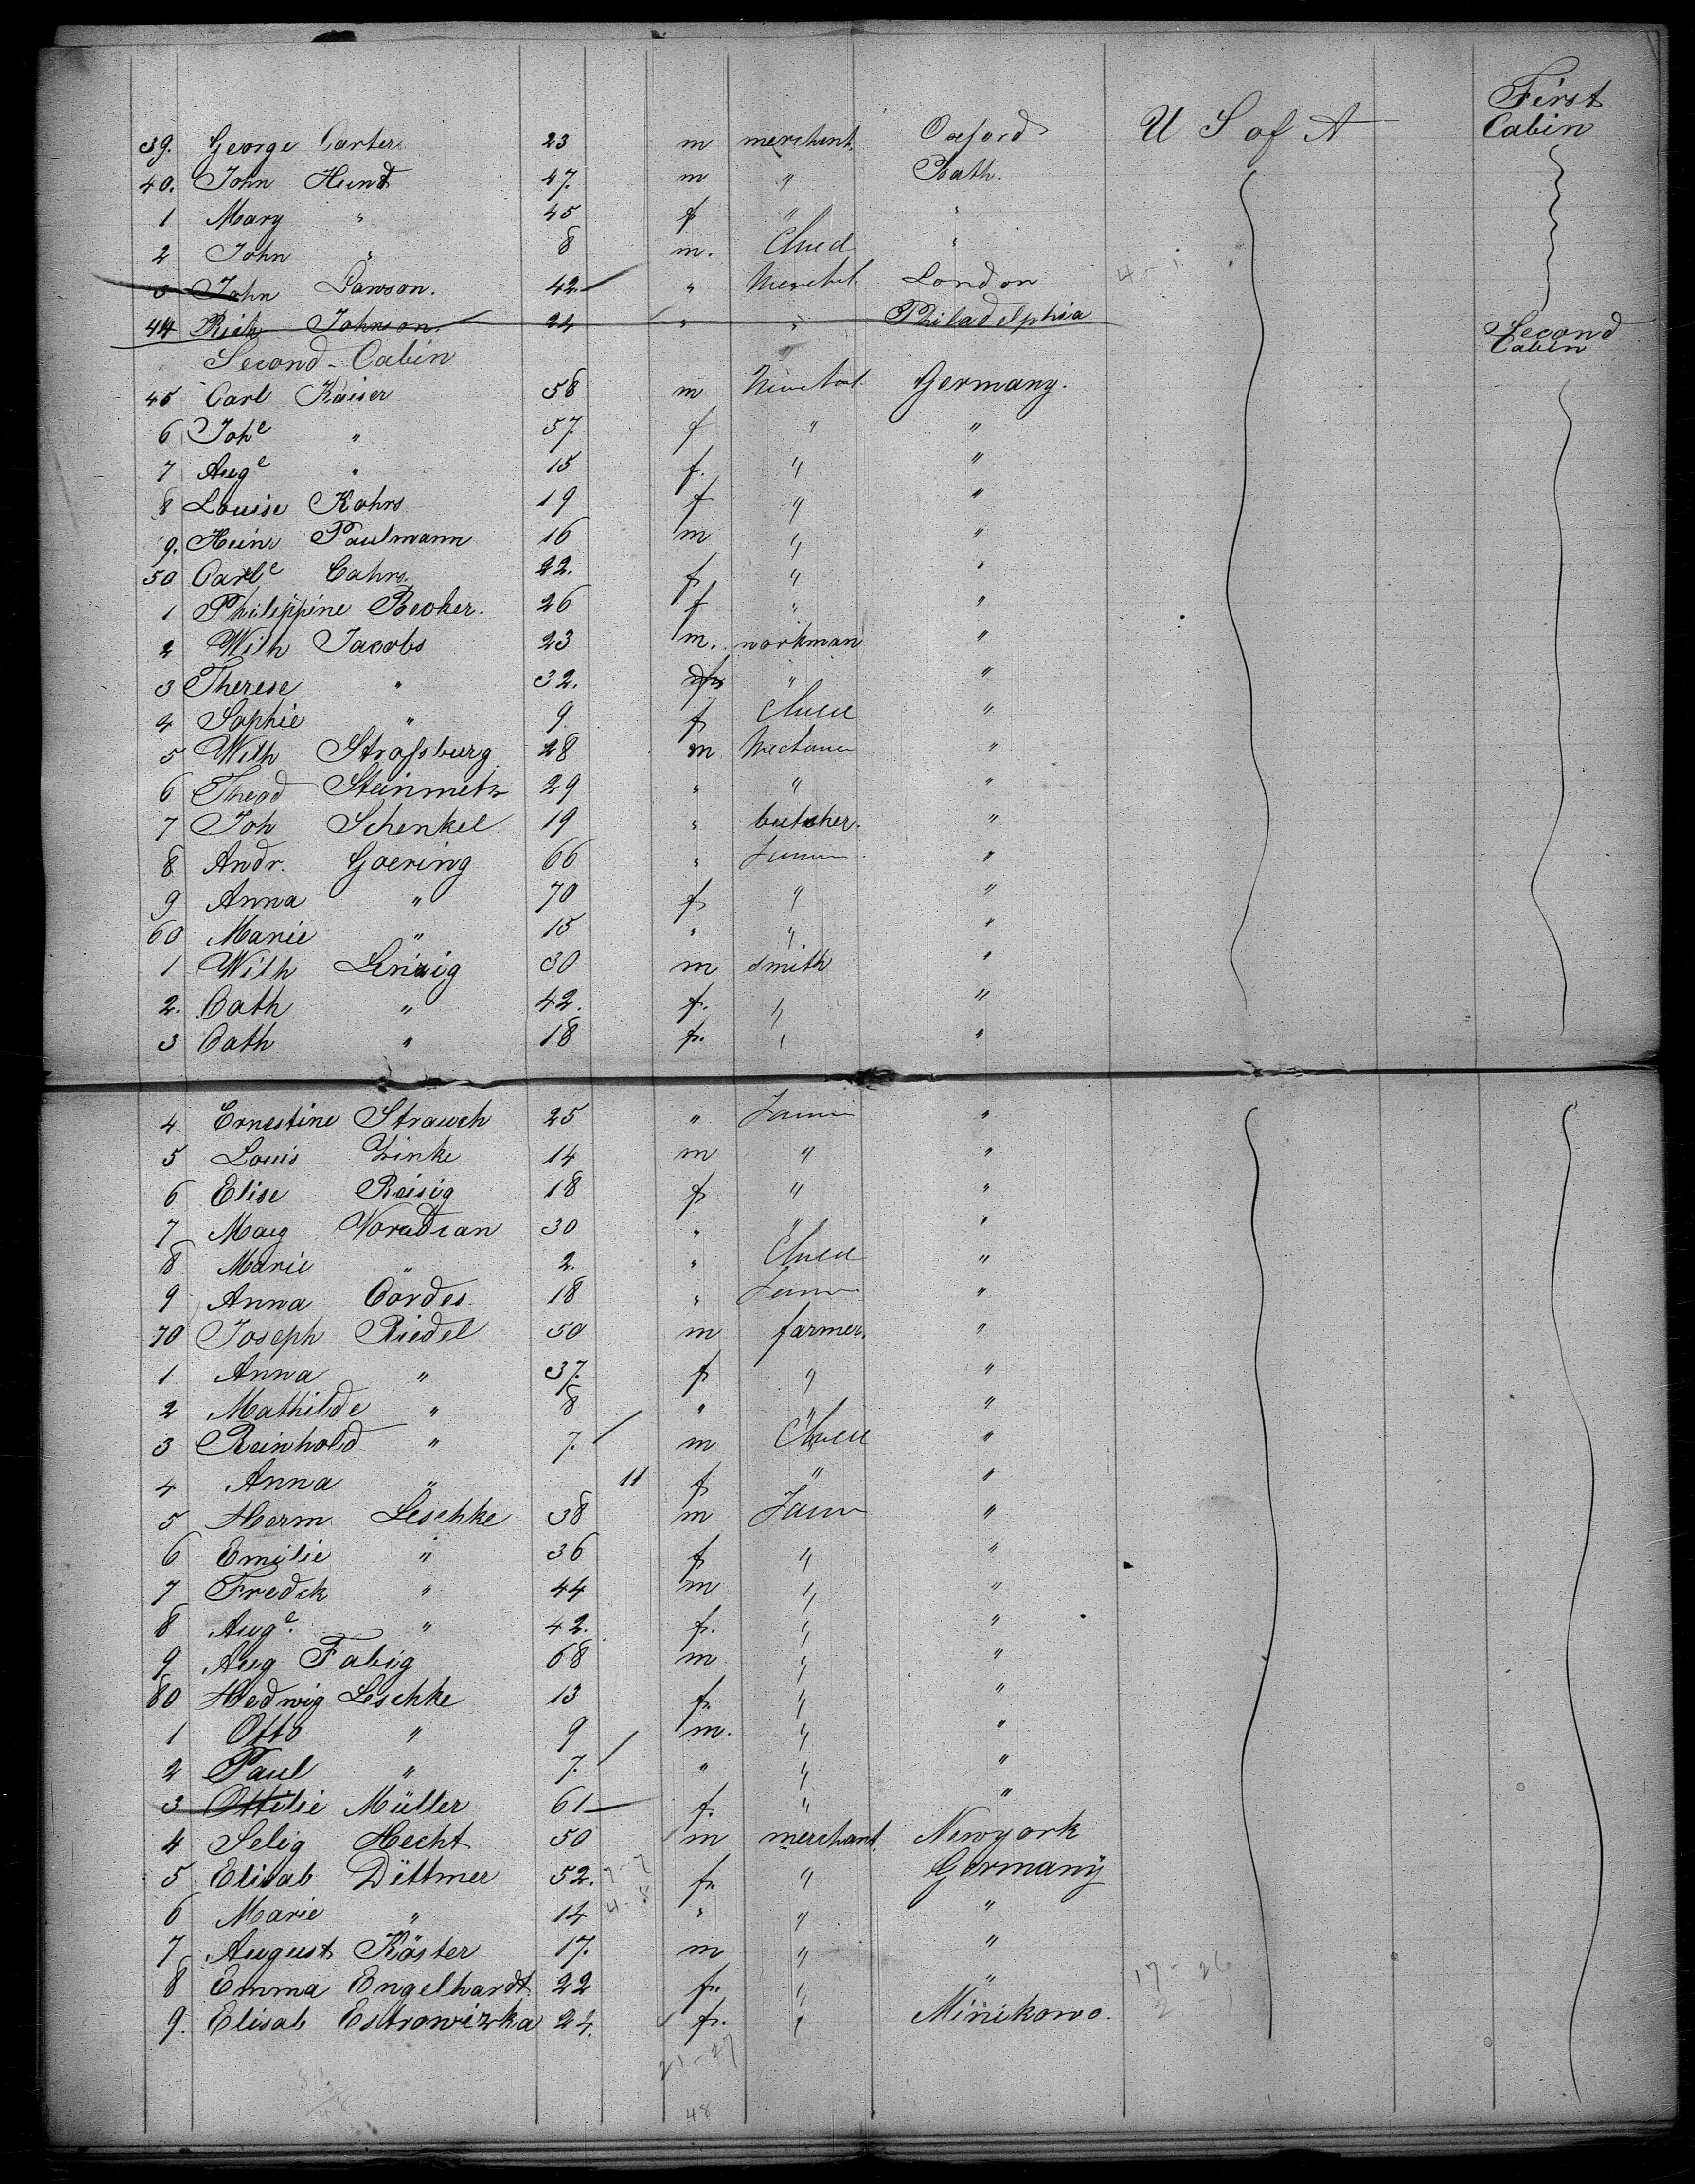 First
39. George Carter 23 m merchant. Oxford U S of A Cabin
40. John Hundt 47. m " Bath.
1 Mary " 45 f " "
2 John " 8 m. Child "
3 John Lawson. 42 " Mercht. London 4-1
44 Rich Johnson. 24 " " Philadelphia Second
Second-Cabin Cabin
45 Carl Kaiser 58 m Merchant. Germany.
6 Joh^e " 57. f " "
7 Aug^e " 15 f. " "
8 Louise Kohrs 19 f " "
9. Heinr Paulmann 16 m " "
50 Carl^e Cahrs. 22. f " "
1 Philippine Becker. 26 f " "
2 Wilh Jacobs 23 m. workman "
3 Therese " 32. " "
4 Sophie " 9 f Child "
5 Wilh Straſsburg 28 m "
6 Theod Steinmetz 29 " " "
7 Joh Schenkel 19 " butcher. "
8 Andr. Goering 66 " "
9 Anna " 70 f " "
60 Marie " 15 " " "
1 Wilh Lenzig 30 m smith "
2. Cath " 42. f. " "
3 Cath " 18 f. " "
4 Ernestine Strauch 25 " "
5 Louis Zinke 14 m " "
6 Elise Reisig 18 f " "
7 Mag 30 " " "
8 Marie " 2. " Child "
9 Anna Cordes 18 " "
70 Joseph Riedel 50 m farmer. "
1 Anna " 37. f " "
2 Mathilde " 8 " " "
3 Reinhold " 7. m Child "
4 Anna " 11 f " "
5 Herm Leschke 38 m "
6 Emilie " 36 f " "
7 Fredck " 44 m " "
8 Aug^e. " 42. f. " "
9 Aug Fabig 68 m " "
80 Hedwig Leschke 13 f. " "
1 Otto " 9 m. " "
2 Paul " 7. " " "
3 Ottilie Müller 61 f. " "
4 Selig Hecht 50 m merchant. Newyork
5 Elisab Dittmer 52. 7-7 f. " Germany
6 Marie " 14 4-8 " " "
7 August Köster 17. m " "
8 Emma Engelhardt 22 f. " " 17-26
9. Elisab Estrowizka 24. f. " Minikowo. 2 1
21-27
48